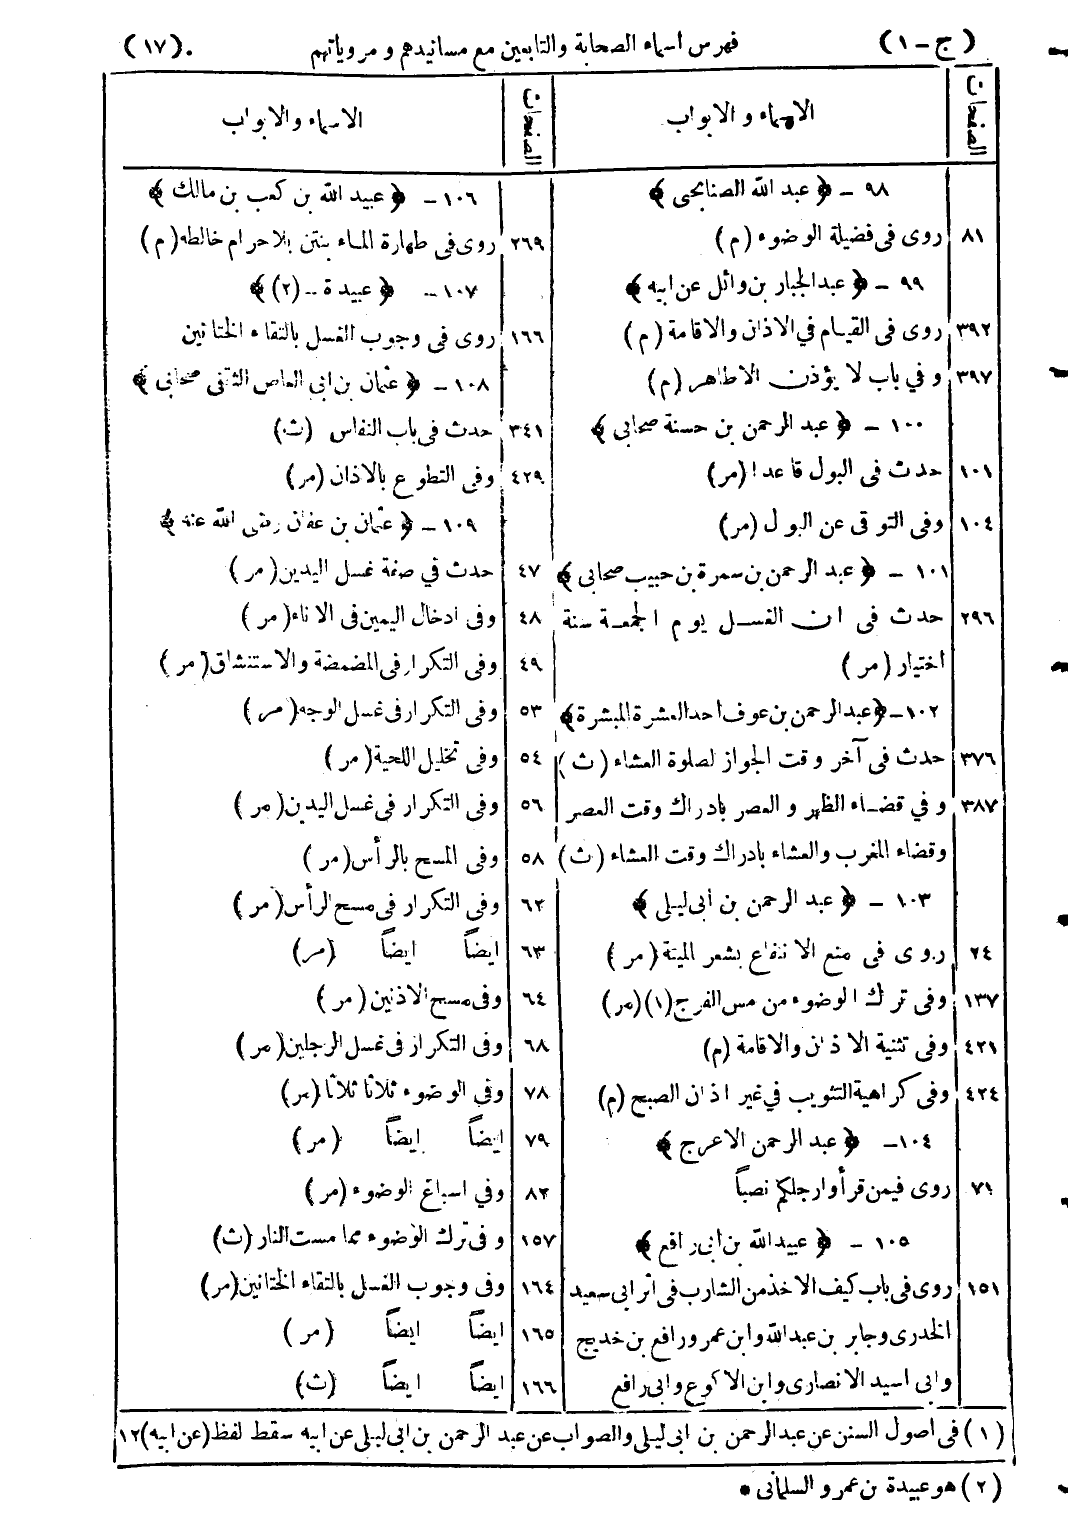 (ج - ١) فهرس اسماء الصحابة والتابعين مع مسانيدهم و مروياتهم (١٧)
الصفحات الاسماء و الابواب
٩٨ - ﴿ عبد الله الصنابحى ﴾
٨١ روى فى فضيلة الوضوء (م)
٩٩ - ﴿ عبد الجبار بن وائل عن ابيه ﴾
٣٩٢ روى فى القيام في الاذان والاقامة (م)
٣٩٧ و في باب لا يؤذن الا طاهر (م)
١٠٠ - ﴿ عبد الرحمن بن حسنة صحابى ﴾
١٠١ حدث فى البول قاعدا (مر)
١٠٤ وفى التوقى عن البول (مر)
١٠١ - ﴿ عبد الرحمن بن سمرة بن حبيب صحابى ﴾
٢٩٦ حدث فى ان الغسل يوم الجمعة سنة
اختيار (مر)
١٠٢ - ﴿ عبدالرحمن بن عوف احدالعشرة المبشرة ﴾
٣٧٦ حدث فى آخر وقت الجواز لصلوة العشاء (ث)
٣٨٧ و في قضاء الظهر و العصر بادراك وقت العصر
وقضاء المغرب والعشاء بادراك وقت العشاء (ث)
١٠٣ - ﴿ عبد الرحمن بن أبى ليلى ﴾
٢٤ روى فى منع الانتفاع بشعر الميتة (مر)
١٣٧ وفى ترك الوضوء من مس الفرج (١) (مر)
٤٢١ وفى تثنية الاذان والاقامة (م)
٤٢٤ وفى كراهية التثويب في غير اذان الصبح (م)
١٠٤ - ﴿ عبد الرحمن الاعرج ﴾
٧١ روى فيمن قرأ وارجلكم نصباً
١٠٥ - ﴿ عبيدالله بن أبى رافع ﴾
١٥١ روى فى باب كيف الاخذ من الشارب فى اثر ابى سعيد
الخدرى وجابر بن عبدالله وابن عمر ورافع بن خديج
وابى اسيد الانصارى وابن الاكوع وابى رافع
الصفحات الاسماء والابواب
١٠٦ - ﴿ عبيد الله بن كعب بن مالك ﴾
٢٦٩ روى فى طهارة الماء بنتن بلا حرام خالطه (م)
١٠٧ - ﴿ عبيدة - (٢) ﴾
١٦٦ روى فى وجوب الغسل بالتقاء الختانين
١٠٨ - ﴿ عثمان بن ابى العاص الثقفى صحابى ﴾
٣٤١ حدث فى باب النفاس (ث)
٤٢٩ وفى التطوع بالاذان (مر)
١٠٩ - ﴿ عثمان بن عفان رضى الله عنه ﴾
٤٧ حدث في صفة غسل اليدين (مر)
٤٨ وفى ادخال اليمين فى الاناء (مر)
٤٩ وفى التكرار فى المضمضة والاستنشاق (مر)
٥٣ وفى التكرار فى غسل الوجه (مر)
٥٤ وفى تخليل اللحية (مر)
٥٦ وفى التكرار فى غسل اليدين (مر)
٥٨ وفى المسح بالرأس (مر)
٦٢ وفى التكرار فى مسح الرأس (مر)
٦٣ ايضاً ايضاً (مر)
٦٤ وفى مسح الاذنين (مر)
٦٨ وفى التكرار فى غسل الرجلين (مر)
٧٨ وفي الوضوء ثلاثا ثلاثا (مر)
٧٩ ايضاً ايضاً (مر)
٨٢ وفي اسباغ الوضوء (مر)
١٥٧ و فى ترك الوضوء مما مست النار (ث)
١٦٤ وفى وجوب الغسل بالتقاء الختانين (مر)
١٦٥ ايضاً ايضاً (مر)
١٦٦ ايضاً ايضاً (ث)
(١) فى اصول السنن عن عبدالرحمن بن ابى ليلى والصواب عن عبد الرحمن بن ابى ليلى عن ابيه سقط لفظ (عن ابيه) ١٢
(٢) هو عبيدة بن عمرو السلمانى •